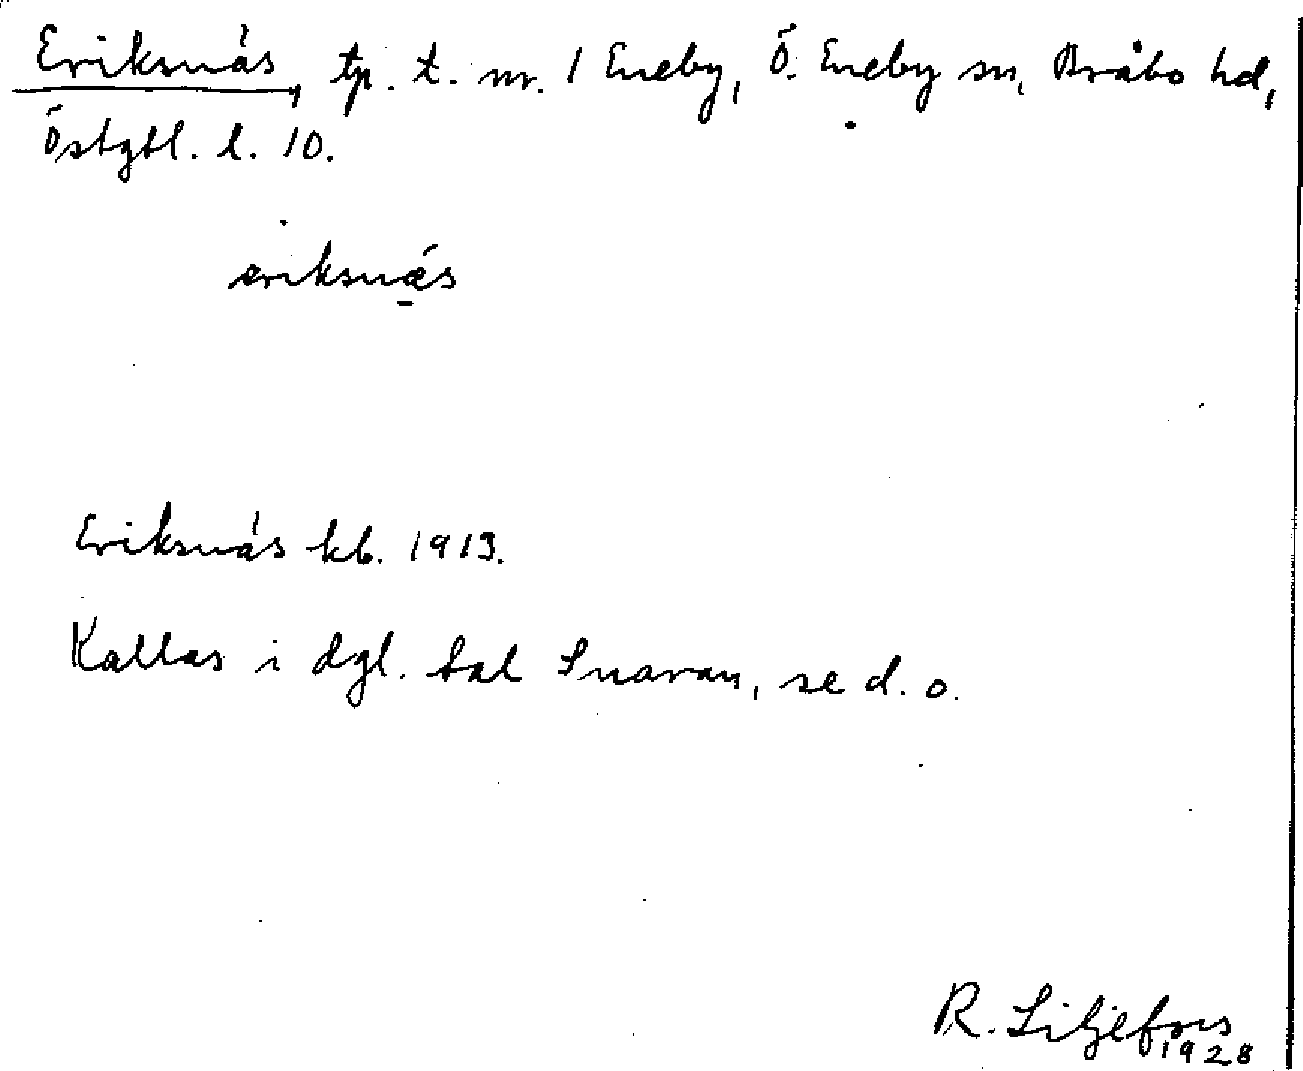 Eriksnäs, tp. t. nr. 1 Eneby, Ö. Eneby sn, Bråbo hd,
Östgtl. l. 10.
eriksnäs
Eriksnäs kb. 1913.
Kallas i dgl. tal Snavan, se d. o.
R. Liljefors
1928